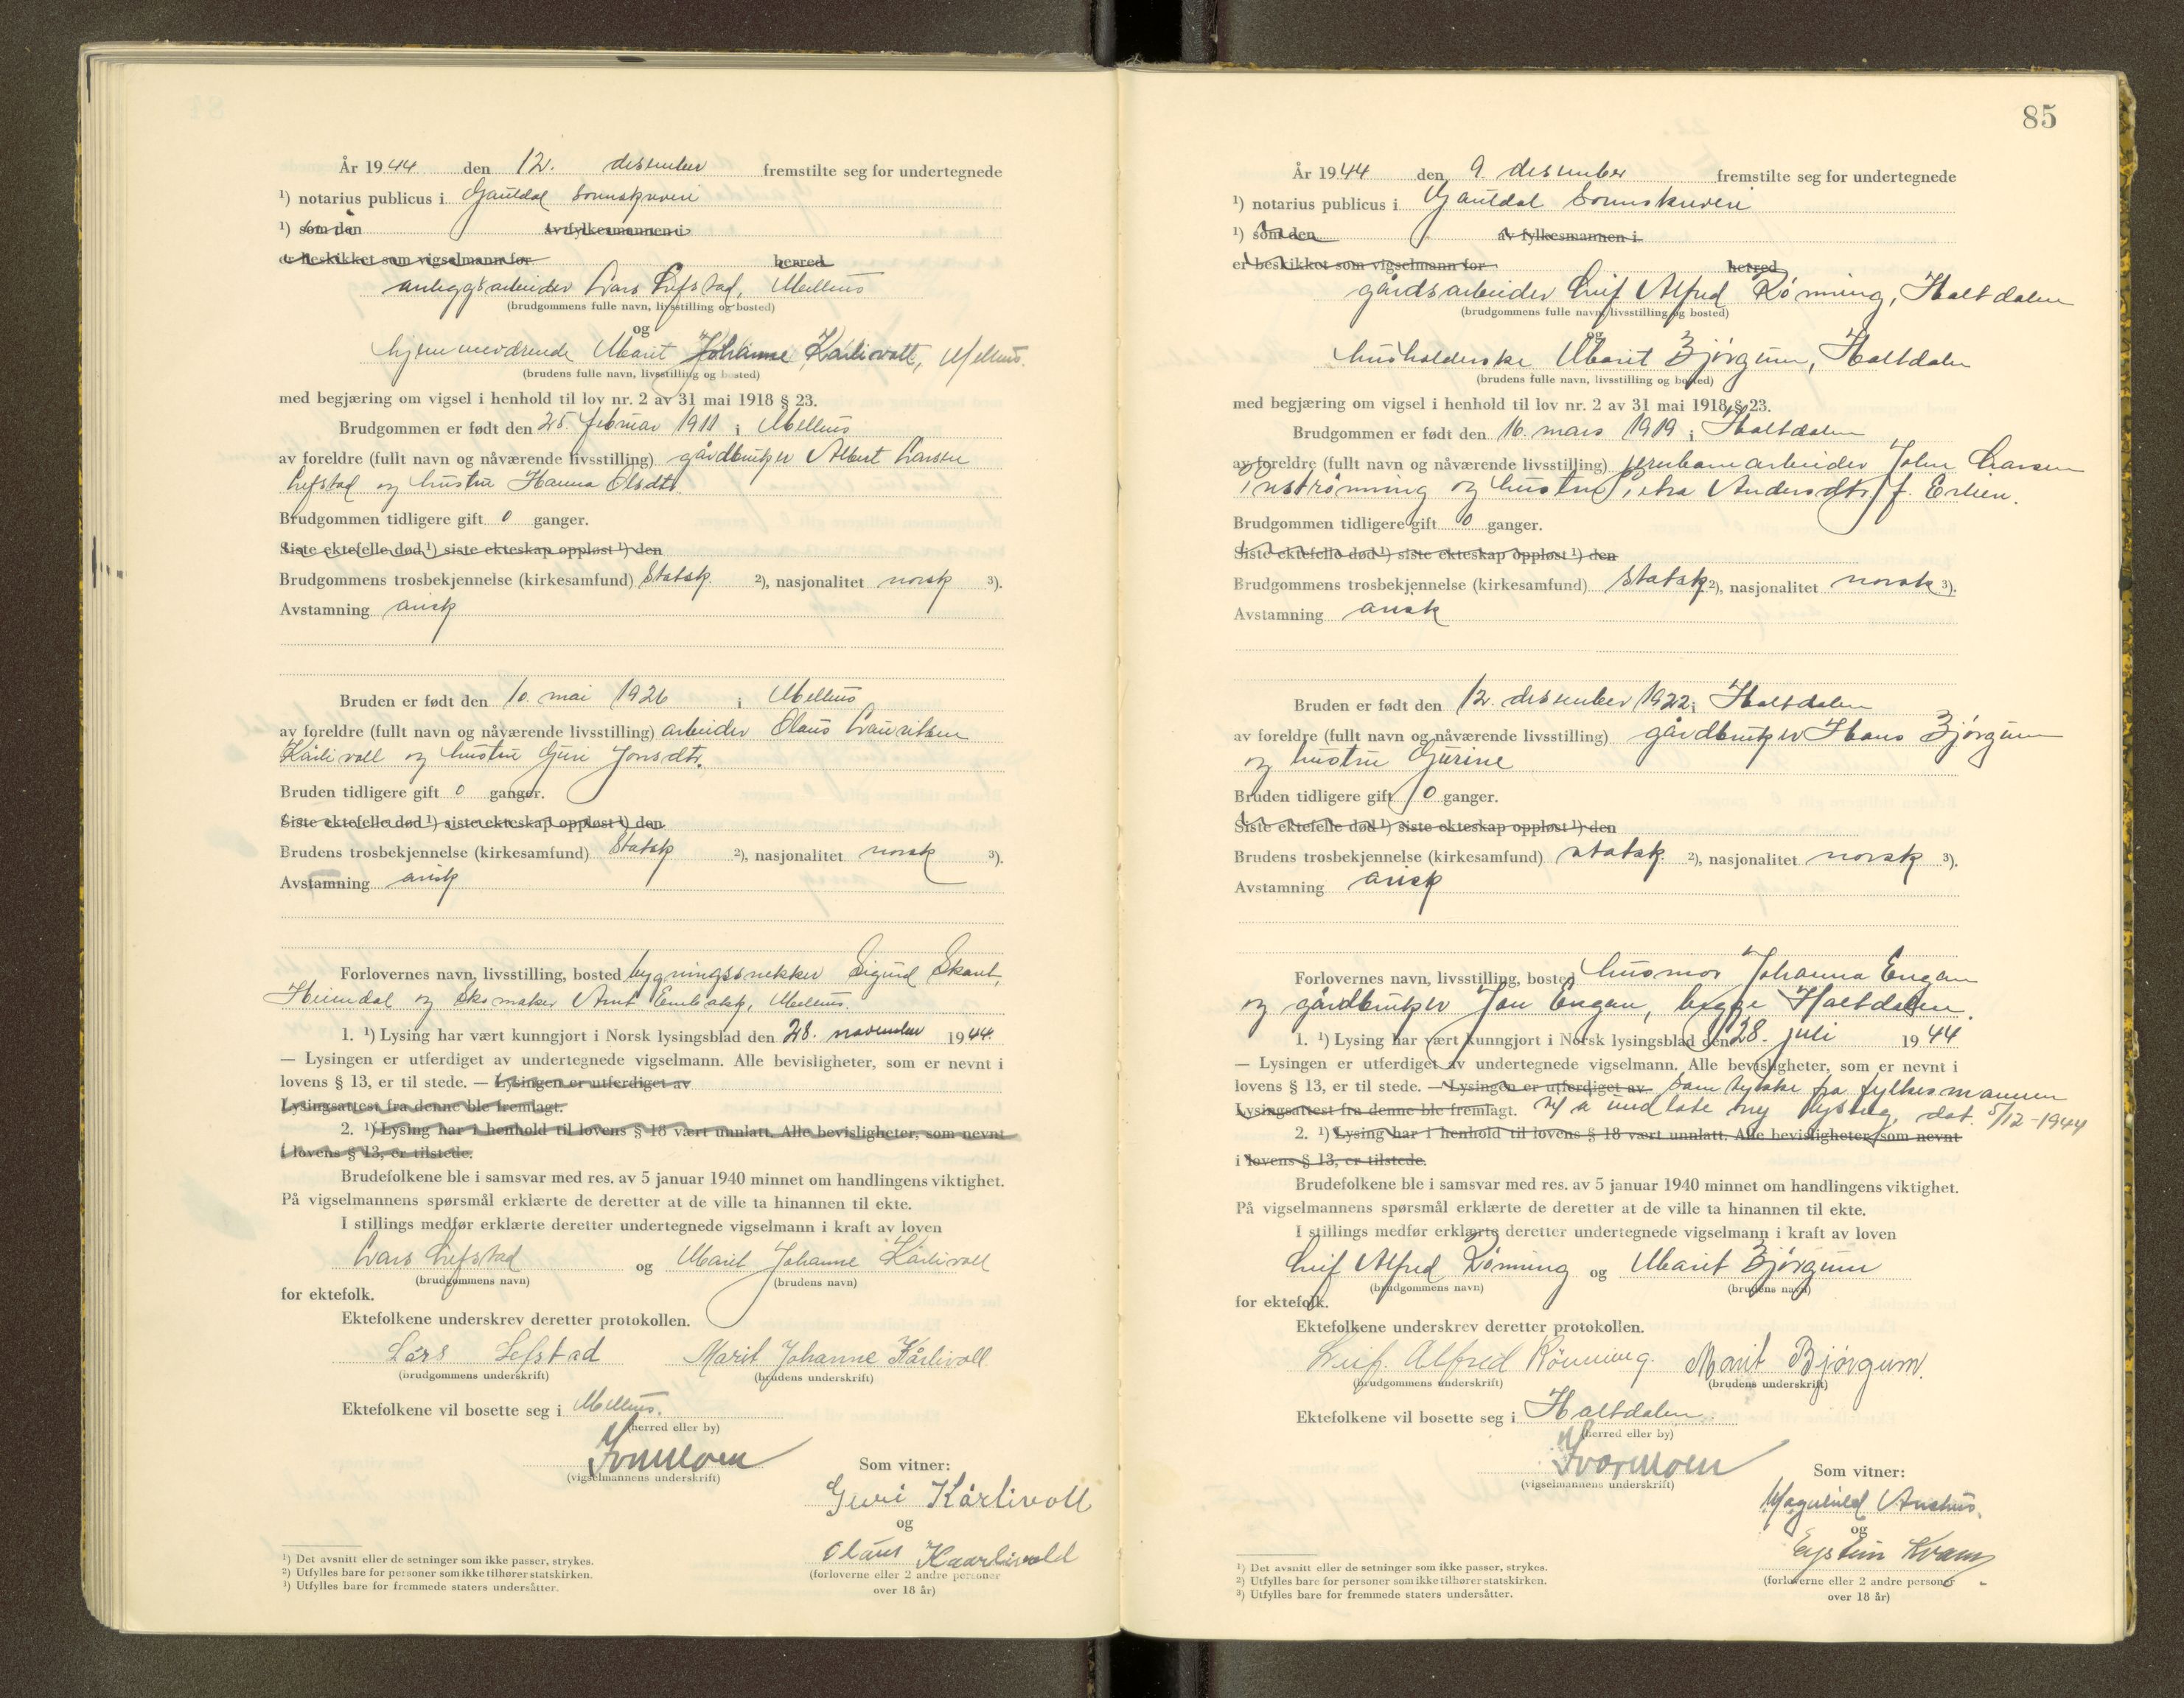 År 1944 den 12. desember fremstilte seg for undertegnede
¹) notarius publicus i Gauldal Sorenskriveri
¹) som den av fylkesmannen i
er beskikket som vigselmann for herred
anleggsarbeider Lars Lefstad, Melhus
(brudgommens fulle navn, livsstilling og bosted)
og
hjemmeværende Marit Johanne Kårlivoll, Melhus.
(brudens fulle navn, livsstilling og bosted)
med begjæring om vigsel i henhold til lov nr. 2 av 31 mai 1918 § 23.
Brudgommen er født den 25. februar 1911 i Melhus
av foreldre (fullt navn og nåværende livsstilling) gårdbruker Albert Larsen
Lefstad og hustru Hanna Olsdtr.
Brudgommen tidligere gift 0 ganger.
Siste ektefelle død ¹) siste ekteskap oppløst ¹) den
Brudgommens trosbekjennelse (kirkesamfund) Statsk. ²), nasjonalitet norsk ³).
Avstamning arisk
Bruden er født den 10. mai 1926 i Melhus
av foreldre (fullt navn og nåværende livsstilling) arbeider Olaus Lauritsen
Kårlivoll og hustru Guri Jonsdtr.
Bruden tidligere gift 0 ganger.
Siste ektefelle død ¹) siste ekteskap oppløst ¹) den
Brudens trosbekjennelse (kirkesamfund) Statsk ²), nasjonalitet norsk ³).
Avstamning arisk
Forlovernes navn, livsstilling, bosted bygningssnekker Sigurd Skaut,
Heimdal og skomaker Arnt, Melhus.
1. ¹) Lysing har vært kunngjort i Norsk lysingsblad den 28. november 1944.
— Lysingen er utferdiget av undertegnede vigselmann. Alle bevisligheter, som er nevnt i
lovens § 13, er til stede. — Lysingen er utferdiget av
Lysingsattest fra denne ble fremlagt.
2. ¹) Lysing har i henhold til lovens § 18 vært unnlatt. Alle bevisligheter, som nevnt
i lovens § 13, er tilstede.
Brudefolkene ble i samsvar med res. av 5 januar 1940 minnet om handlingens viktighet.
På vigselmannens spørsmål erklærte de deretter at de ville ta hinannen til ekte.
I stillings medfør erklærte deretter undertegnede vigselmann i kraft av loven
Lars Lefstad og Marit Johanne Kårlivoll
(brudgommens navn) (brudens navn)
for ektefolk.
Ektefolkene underskrev deretter protokollen.
Lars Lefstad Marit Johanne Kårlivoll
(brudgommens underskrift) (brudens underskrift)
Ektefolkene vil bosette seg i Melhus.
(herred eller by)
(vigselmannens underskrift)
Som vitner:
Guri Kårlivoll
og
Olaus Kaarlivold
(forloverne eller 2 andre personer
over 18 år)
¹) Det avsnitt eller de setninger som ikke passer, strykes.
²) Utfylles bare for personer som ikke tilhører statskirken.
³) Utfylles bare for fremmede staters undersåtter.
85
År 1944 den 9. desember fremstilte seg for undertegnede
¹) notarius publicus i Gauldal Sorenskriveri
¹) som den av fylkesmannen i
er beskikket som vigselmann for herred
gårdsarbeider Leif Alfred Rønning, Haltdalen
(brudgommens fulle navn, livsstilling og bosted)
og
husholderske Marit Bjørgum, Haltdalen
(brudens fulle navn, livsstilling og bosted)
med begjæring om vigsel i henhold til lov nr. 2 av 31 mai 1918 § 23.
Brudgommen er født den 16. mars 1919 i Haltdalen
av foreldre (fullt navn og nåværende livsstilling) jernbanearbeider John Larsen
Instrønning og hustru Petra Andersdtr. f. Erlien.
Brudgommen tidligere gift 0 ganger.
Siste ektefelle død ¹) siste ekteskap oppløst ¹) den
Brudgommens trosbekjennelse (kirkesamfund) statsk ²), nasjonalitet norsk ³).
Avstamning arisk
Bruden er født den 12. desember 1922 i Haltdalen
av foreldre (fullt navn og nåværende livsstilling) gårdbruker Hans Bjørgum
og hustru Gurine
Bruden tidligere gift 0 ganger.
Siste ektefelle død ¹) siste ekteskap oppløst ¹) den
Brudens trosbekjennelse (kirkesamfund) statsk. ²), nasjonalitet norsk ³).
Avstamning arisk
Forlovernes navn, livsstilling, bosted husmor Johanna Engan
og gårdbruker Jon Engan, begge Haltdalen.
1. ¹) Lysing har vært kunngjort i Norsk lysingsblad den 28. juli 1944
— Lysingen er utferdiget av undertegnede vigselmann. Alle bevisligheter, som er nevnt i
lovens § 13, er til stede. — Lysingen er utferdiget av Samtykke fra fylkesmannen
Lysingsattest fra denne ble fremlagt. til å unnlate ny lysing, dat. 5/12-1944
2. ¹) Lysing har i henhold til lovens § 18 vært unnlatt. Alle bevisligheter, som nevnt
i lovens § 13, er tilstede.
Brudefolkene ble i samsvar med res. av 5 januar 1940 minnet om handlingens viktighet.
På vigselmannens spørsmål erklærte de deretter at de ville ta hinannen til ekte.
I stillings medfør erklærte deretter undertegnede vigselmann i kraft av loven
Leif Alfred Rønning og Marit Bjørgum
(brudgommens navn) (brudens navn)
for ektefolk.
Ektefolkene underskrev deretter protokollen.
Leif. Alfred Rønning. Marit Bjørgum.
(brudgommens underskrift) (brudens underskrift)
Ektefolkene vil bosette seg i Haltdalen.
(herred eller by)
(vigselmannens underskrift)
Som vitner:
Magnhild
og
Eystein Kvam
(forloverne eller 2 andre personer
over 18 år)
¹) Det avsnitt eller de setninger som ikke passer, strykes.
²) Utfylles bare for personer som ikke tilhører statskirken.
³) Utfylles bare for fremmede staters undersåtter.